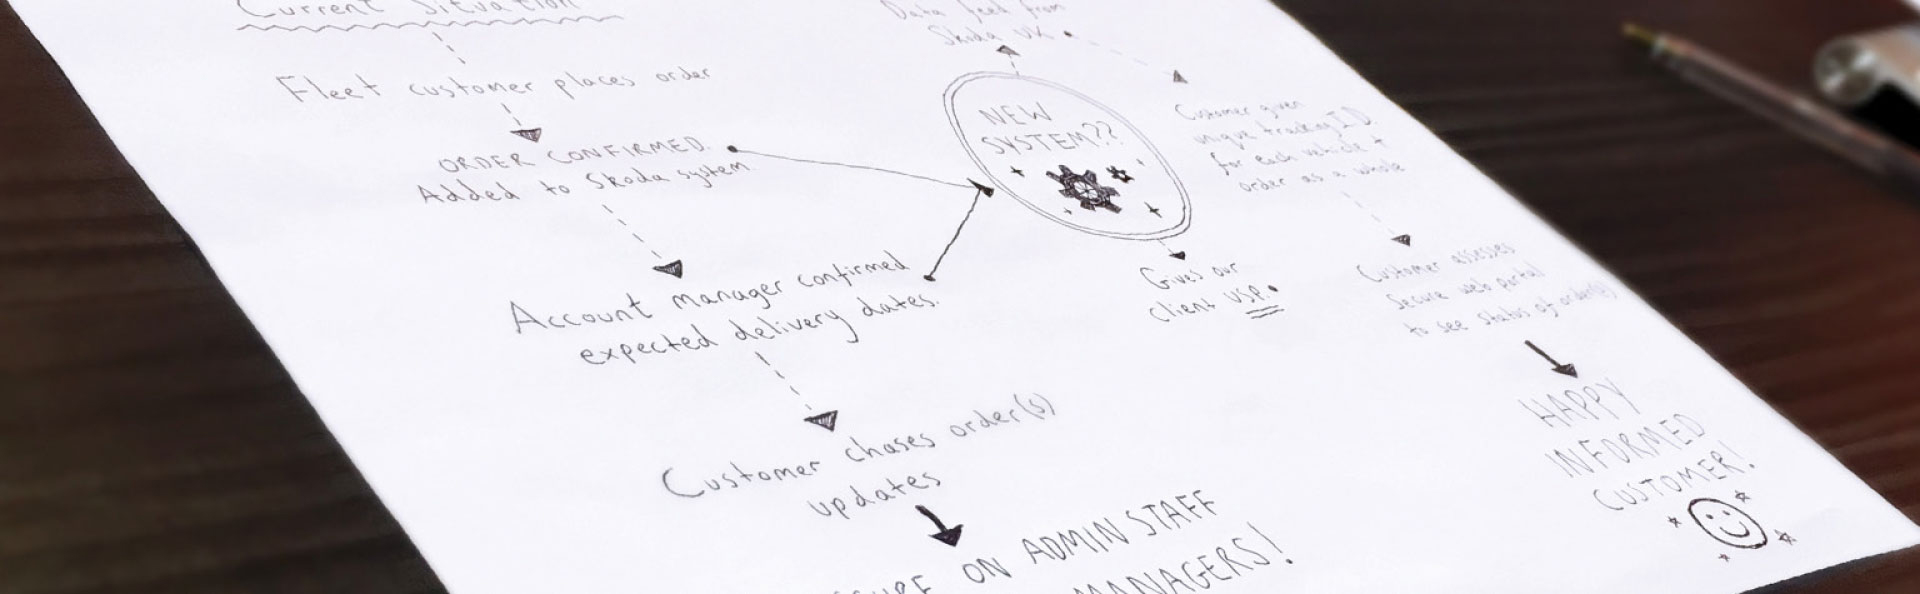 Current Situation
Fleet customer places order
ORDER CONFIRMED.
Added to Skoda system
Account manager confirmed
expected delivery dates.
Customer chases order(s)
updates
ON ADMIN STAFF
MANAGERS!
Data feed from
Skoda UK
NEW
SYSTEM??
Gives our
client USP.
Customer given
unique tracking ID
for each vehicle +
order as a whole
Customer assesses
Secure web portal
to see status of order(s)
HAPPY
INFORMED
CUSTOMER!